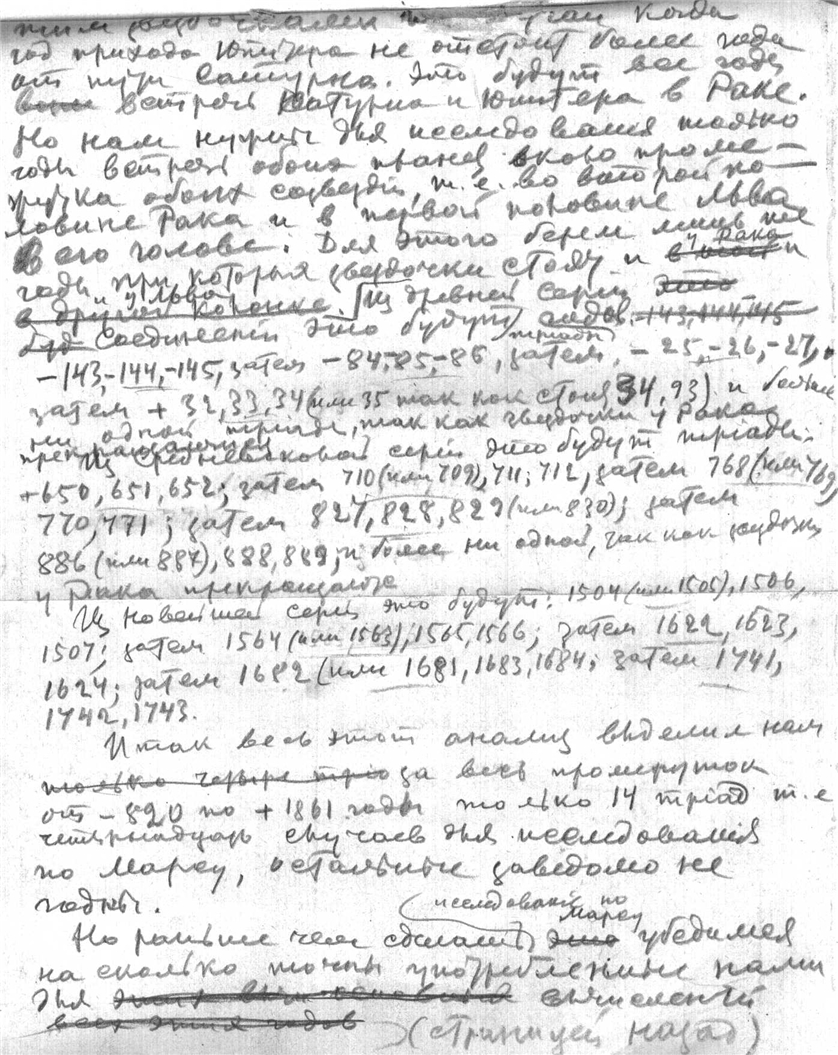 когда
год прихода Юпитра не отстоит более года
от пути Сатурна. Это будут все годы
встреч Сатурна и Юпитера в Раке.
Но нам нужны для исследования только
годы встреч обоих планет около проме-
жутка обоих созвездий, т.е. во второй по-
ловине Рака и в первой половине Льва
в его голове. Для этого берем лишь те
годы при которых звездочки стоят и у Рака и
и у Льва
в другой колонке. Из древней серии это
буд соединений это будут годов -143,-144,-145
-143,-144,-145, затем -84,-85,-86, затем триады -25,-26,-27,
затем +32,33,34 (или 35 так как стоит 34,93) и больше
ни одной триады, так как звездочки у Рака
прекращаются
Из средневековой серии это будут триады:
+650, 651, 652; затем 710 (или 709), 711, 712, затем 768 (или 769)
770, 771; затем 827, 828, 829 (или 830); затем
886 (или 887), 888, 889; и более ни одной, так как звездочки
у Рака прекращаются
Из новейшей серии это будут: 1504 (или 1505), 1506,
1507; затем 1564 (или 1563), 1565, 1566; затем 1622, 1623,
1624; затем 1682 (или 1681, 1683, 1684; затем 1741,
1742, 1743.
Итак весь этот анализ выделил нам
только четыре за весь промежуток
от -820 по +1861 годы только 14 тріад т.е
четырнадцать случаев для исследованія
по Марсу, остальные заведомо не
годны.
исследованія по
Марсу
Но раньше чем сделать это убедимся
на сколько точны употребленные нами
для вычислений
всех этих годов (страницей назад)